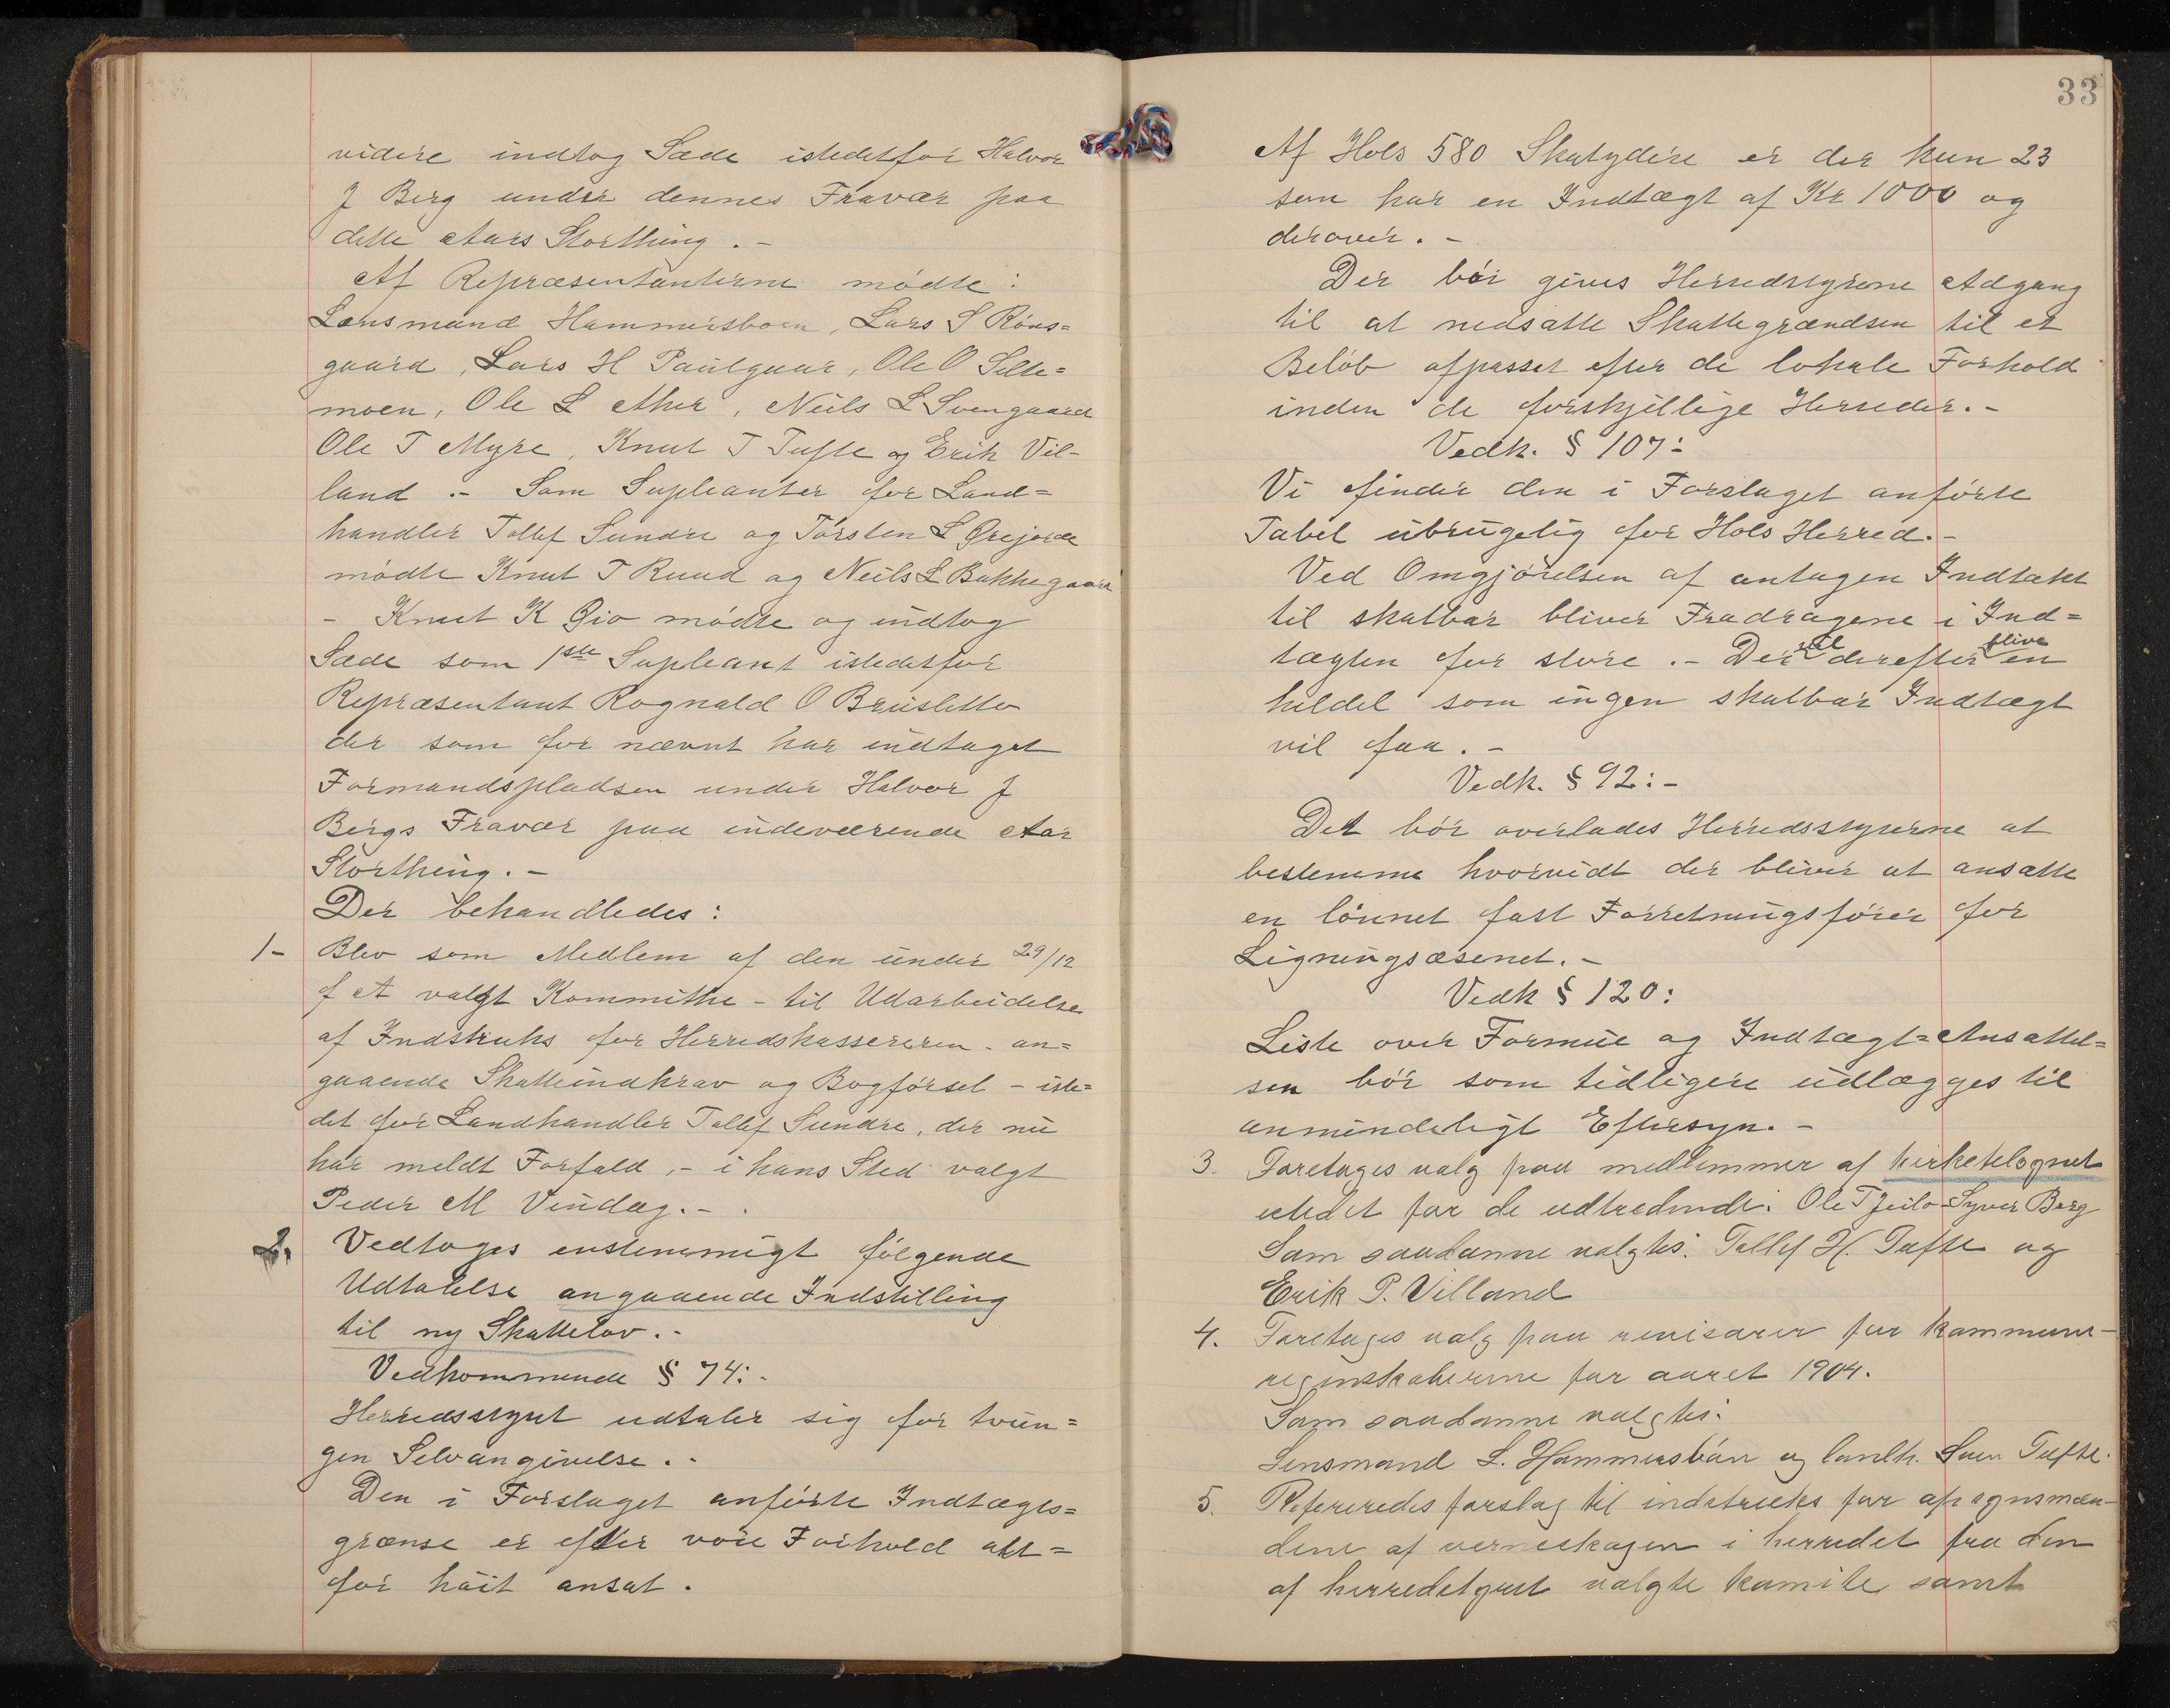 videre indtog Sæde istedetfor Halvor
J Berg under dennes Fravær paa
dette Aars Storthing . -
Af Repræsentanterne mødte :
Lensmand Hammersboen, Lars S Røns=
gaard, Lars H Paulgaar, Ole O Sille=
moen, Ole L Aker, Neils L Svengaard
Ole T Myre, Knut T Tufte og Erik Vil-
land .- Som Supleanter for Land=
handler Tollef Sundre og Torsten L
mødte Knut T Ruud og Neils L Bakkegaard
- Knut K Gio mødte og indtog
Sæde som 1ste Supleant istedetfor
Repræsentant Rognald O Brusletto
der som før nævnt har indtaget
Formandspladsen under Halvor J
Bergs Fravær paa indeværende Aar
Storthing. -
Der behandledes :
1- Blev som Medlem af den under 29/12
f A valgt Kommithe - til Udarbeidelse
af Indstruks for Herredskassereren - an=
gaaende Skatteindkrav og Bogførsel - iste=
det for Landhandler Tollef Sundre, der nu
har meldt Forfald, - i hans Sted valgt
Peder M Vindeg. -
2. Vedtoges enstemmigt følgende
Udtalelse angaaende Indstilling
til ny Skattelov. -
Vedkommende § 74: -
Herredsstyret udtaler sig for tvun=
gen Selvangivelse. -
Den i Forslaget anførte Indtægts=
grænse er efter vore Forhold alt=
for høit ansat .
33
Af Hols 580 Skatydere er der kun 23
som har en Indtægt af Kr 1000 og
derover. -
Der bør gives Herredstyrene Adgang
til at nedsætte Skattegrændsen til et
Beløb afpasset efter de lokale Forhold
inden de forskjellige Herreder. -
Vedk. § 107:
Vi finder den i Forslaget anførte
Tabel ubrugelig for Hols Herred. -
Ved Omgjørelsen af antagen Indtækt
til skatbar bliver Fradragene i Ind=
tægten for store . - Der vil derefter blive en
heldel som ingen skatbar Indtægt
vil faa . -
Vedk. § 92: -
Det bør overlades Herredsstyrerne at
bestemme hvorvidt der bliver at ansætte
en lønnet fast Forretningsfører for
Ligningsæsenet. -
Vedk § 120:
Liste over Formue og Indtægt=Ansættel=
sen bør som tidligere udlægges til
anmindeligt Eftersyn. -
3. Foretoges valg paa medlemmer af kirketilsynet
istedet for de udtredende: Ole T Jeilo - Syver Berg
Som saadanne valgtes: Tollef H. Tufte og
Erik P. Villand
4. Foretoges valg paa revisorer for kommune-
regnskaberne for aaret 1904.
Som saadanne valgtes:
Lensmand L. Hammersbøen og landh. Sven Tufte.
5. Refereredes forslag til indstruks for opsynsmæn-
dene af verneskogen i herredet fra den
af herredstyret valgte komite, samt